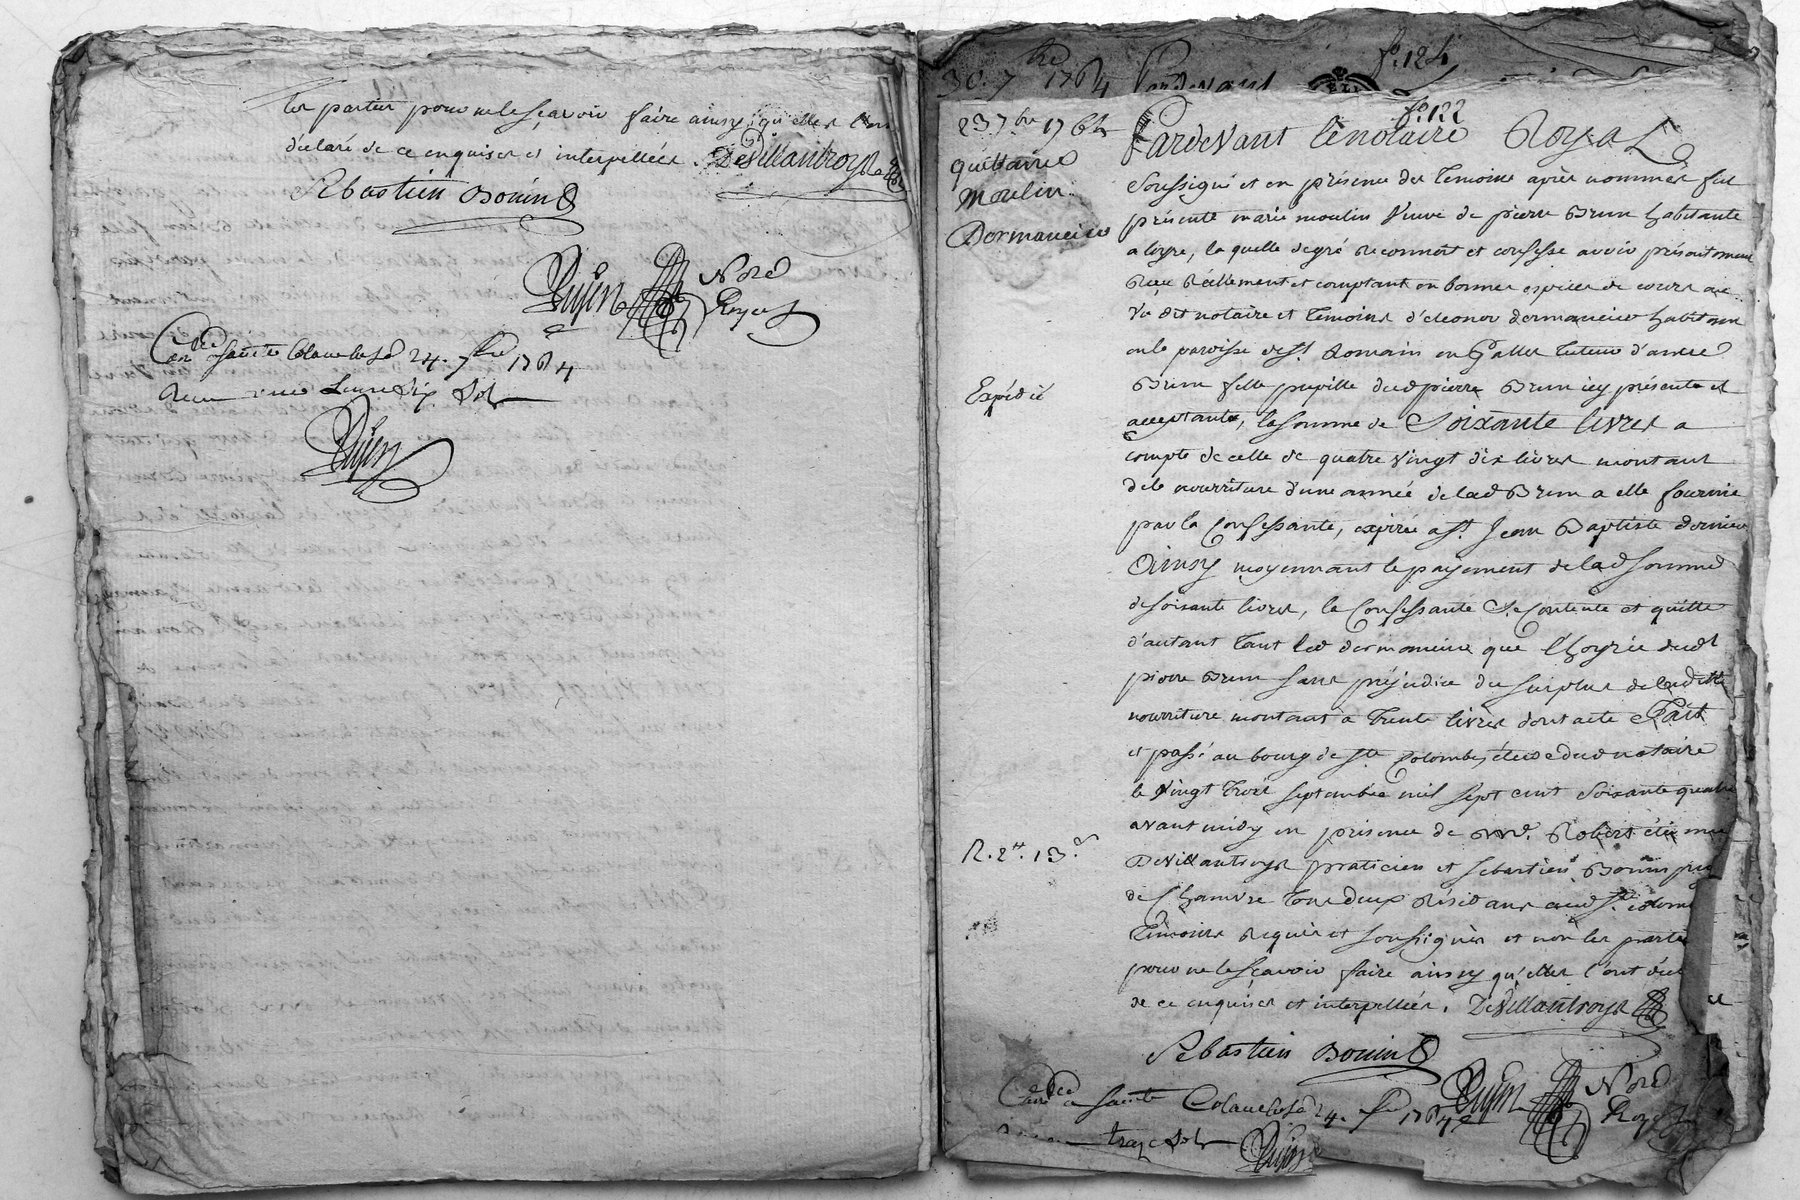 les parties pour ne le sçavoir faire ainsy qu'elles l'ont
déclaré de ce enquises et interpellées. DeVillantroys
Sébastien Bonin
Dujen Nore
Royal
Con.lé a Sainte Colombe le 24. 7bre 1764
Reçu sols
Dujen
30. 7bre 1764 Pardevant fo. 124
fo. 122
23. 7bre 1764
quittance
Moulin
Dormancie
Expédié
R. 2tt. 13.s
Pardevant le notaire Royal
Soussigné et en présence des temoins après nommés fut
présente marie moulin veuve de pierre Brun habitante
a laquelle de gré reconnoit et confesse avoir présentement
Reçu Réellement et comptant en bonnes espèces de cours au
Vu dit notaire et temoins d'éléonor dormancie habitant
en la paroisse de St. Romain en tuteur d'
Brun fille pupille dud pierre Brun icy présente et
acceptante, la somme de Soixante livres a
compte de celle de quatre vingt dix livres montant
de la nourriture d'une année de lad Brun a elle fournie
par la Confessante, expirée a St. Jean Baptiste dernier
Ainsy moyennant le payement de lad somme
de soixante livres, la Confessante Se Contente et quitte
d'autant tant led dormancie que l'hoyrie dudt
pierre Brun sans préjudice du surplus de ladite
nourriture montant a trente livres dont acte Fait
et passé au bourg de Ste Colombe, étude dud notaire
le Vingt trois septembre mil sept cent Soixante quatre
avant midy en présence de Robert étienne
DeVillantroys praticien et sébastien Bonin
de Chanvre tous deux Résidans aud Ste. Colombe
Témoins Requis et soussignés et non les parties
pour ne le sçavoir faire ainsy qu'elles l'ont
de ce enquises et interpellées. DeVillantroys
Sébastien Bonin
Dujen Nore
Royal
a Sainte Colombe le 24. 7bre 1764
treze sols
Dujen